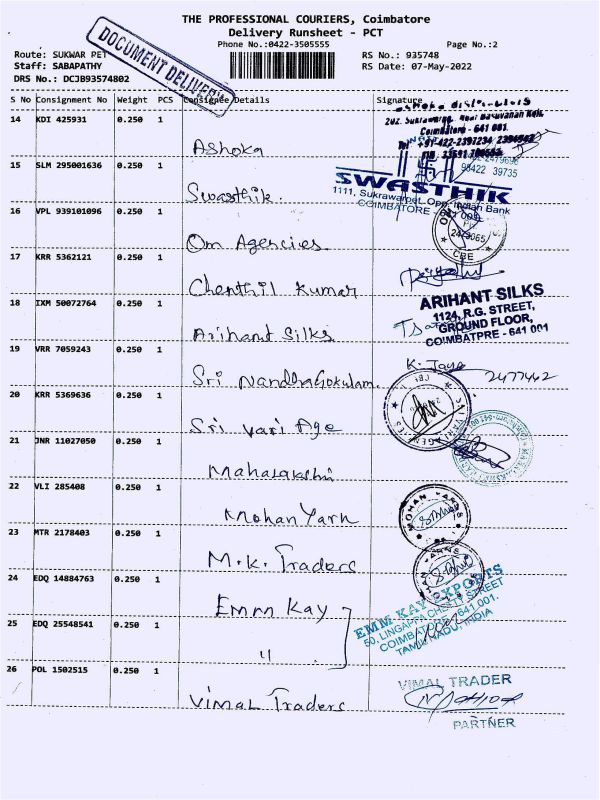 THE PROFESSIONAL COURIERS, Coimbatore
Delivery Runsheet - PCT
Phone No.:0422-3505555 Page No.:2
Route: SUKWAR PET RS No.: 935748
Staff: SABAPATHY RS Date: 07-May-2022
DRS No.: DCJB93574802
DOCUMENT DELIVERY
S No Consignment No Weight PCS Consignee Details Signature
14 KDI 425931 0.250 1 Ashoka
Coimbatore - 641 001.
Tel +91-422-2397234
15 SLM 295001636 0.250 1 Swasthik
98422 39735
SWASTHIK
1111, Sukrawarpet, Opp. Indian Bank
COIMBATORE - 641 001
16 VPL 939101096 0.250 1 Om Agencies
CBE
17 KRR 5362121 0.250 1 Chenthil Kumar
18 IXM 50072764 0.250 1 Arihant Silks
ARIHANT SILKS
1124, R.G. STREET,
GROUND FLOOR,
COIMBATPRE - 641 001
19 VRR 7059243 0.250 1 Sri Nandhagokulam
K. Jaya
2477442
20 KRR 5369636 0.250 1 Sri Vari Age
21 JNR 11027050 0.250 1 Mahalakshmi
22 VLI 285408 0.250 1 Mohan Yarn
MOHAN YARNS
23 MTR 2178403 0.250 1 M.K. Traders
24 EDQ 14884763 0.250 1 Emm Kay
EMM KAY EXPORTS
50, LINGAPPA CHETTY STREET
COIMBATORE - 641 001.
TAMIL NADU, INDIA
25 EDQ 25548541 0.250 1 "
26 POL 1502515 0.250 1 Vimal Traders
VIMAL TRADER
PARTNER